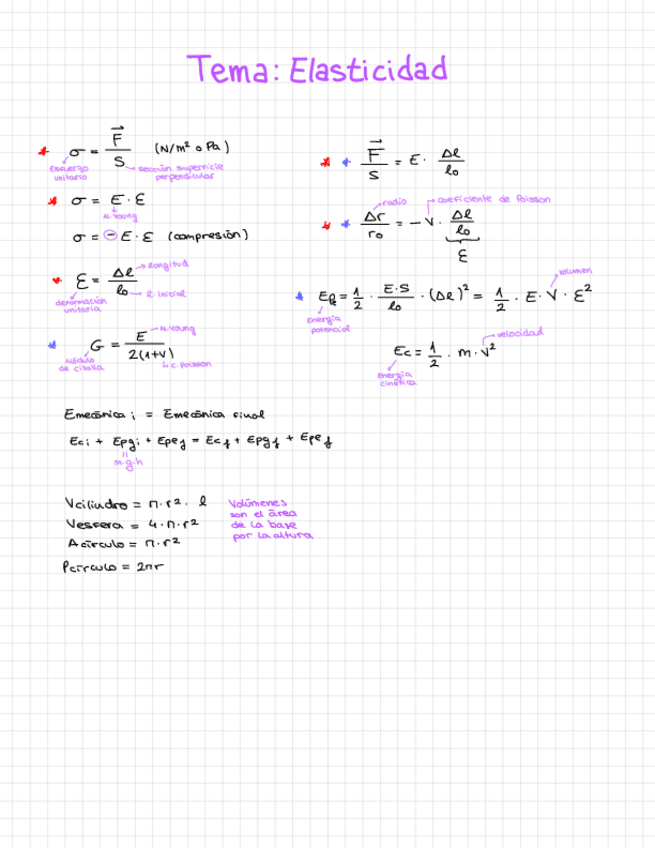 Tema: Elasticidad
σ = F⃗ / S (N/m² o Pa)
Esfuerzo unitario
sección superficie perpendicular
σ = E · ε
M. Young
σ = - E · ε (compresión)
ε = Δl / l₀
longitud
l inicial
deformación unitaria
G = E / 2(1+ν)
M. Young
módulo de cizalla
c. Poisson
F⃗ / S = E · Δl / l₀
radio
coeficiente de Poisson
Δr / r₀ = - ν · Δl / l₀
ε
volumen
= 1/2 · E·S / l₀ · (Δl)² = 1/2 · E · V · ε²
energía potencial
velocidad
Ec = 1/2 · m · v²
energía cinética
Emecánica i = Emecánica final
Eci + Epgi + Epef = Ecf + Epgf + Epef
m·g·h
Vcilindro = π · r² · l
Vesfera = 4 · π · r²
Acírculo = π · r²
Pcírculo = 2πr
Volúmenes
son el área
de la base
por la altura